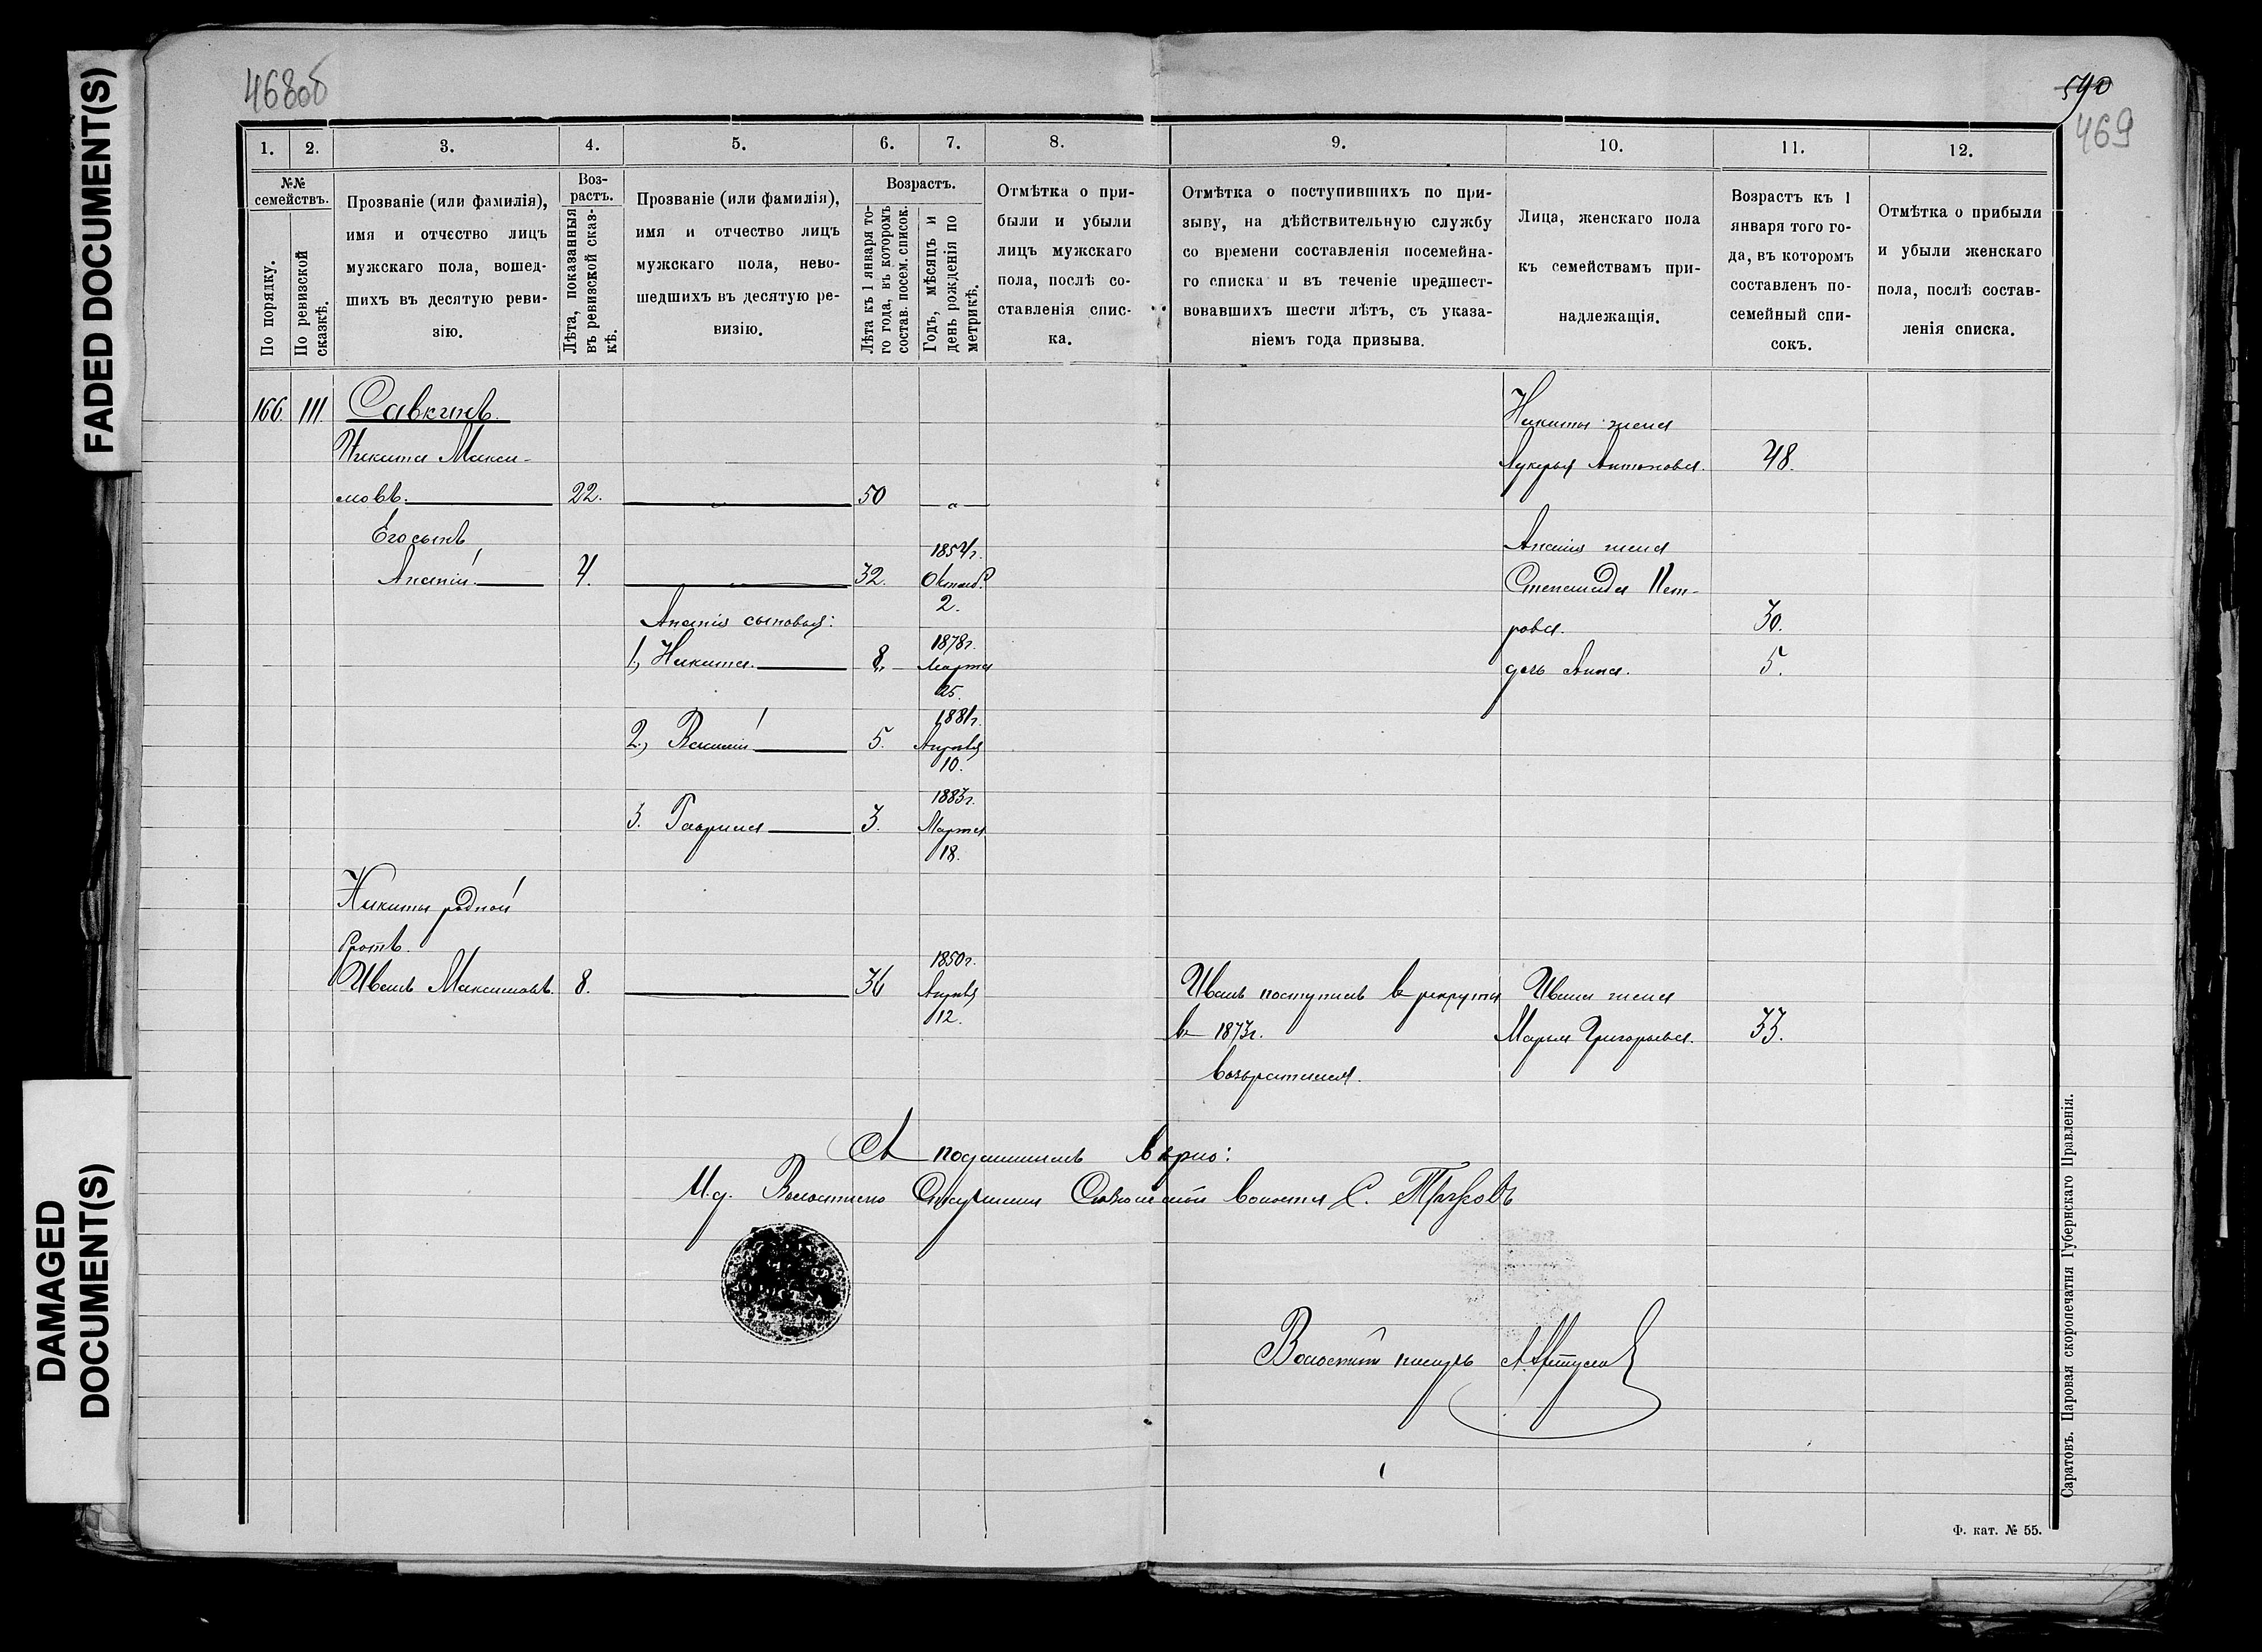 FADED DOCUMENT(S)
DAMAGED
DOCUMENT(S)
468об
590
469
1.
2.
3.
4.
5.
6.
7.
8.
9.
10.
11.
12.
№№
семействъ.
По порядку.
По ревизской
сказкѣ.
Прозваніе (или фамилія),
имя и отчество лицъ
мужскаго пола, вошед-
шихъ въ десятую реви-
зію.
Воз-
растъ.
Лѣта, показанныя
въ ревизской сказ-
кѣ.
Прозваніе (или фамилія),
имя и отчество лицъ
мужскаго пола, нево-
шедшихъ въ десятую ре-
визію.
Возрастъ.
Лѣта къ 1 января то-
го года, въ которомъ
состав. посем. список.
Годъ, мѣсяцъ и
день рожденія по
метрикѣ.
Отмѣтка о при-
были и убыли
лицъ мужскаго
пола, послѣ со-
ставленія спис-
ка.
Отмѣтка о поступившихъ по при-
зыву, на дѣйствительную службу
со времени составленія посемейна-
го списка и въ теченіе предшест-
вовавшихъ шести лѣтъ, съ указа-
ніемъ года призыва.
Лица, женскаго пола
къ семействамъ при-
надлежащія.
Возрастъ къ 1
января того го-
да, въ которомъ
составленъ по-
семейный спи-
сокъ.
Отмѣтка о прибыли
и убыли женскаго
пола, послѣ состав-
ленія списка.
166. 111. Савкинъ.
Никита Макси-
мовъ. 22. 50
Его сынъ
Ананій. 4. 32. 1854г.
Октяб.
2.
Ананія сыновья:
1, Никита. 8. 1878г.
Марта
25.
2, Василій 5. 1881г.
Апрѣля
10.
3. Гаврила 3. 1883г.
Марта
18.
Никиты родной
братъ.
Иванъ Максимовъ. 8. 36 1850г.
Апрѣля
12.
Иванъ поступилъ въ рекруты
въ 1873г.
возвратился.
Никиты жена
Лукерья Антонова. 48.
Ананія жена
Степанида Пет-
рова. 30.
дочь Анна. 5.
Ивана жена
Марья Григорьева. 33.
Съ подлиннымъ вѣрно:
И.д. Волостнаго Старшины волости С.
Волостной писарь
Саратовъ. Паровая скоропечатня Губернскаго Правленія.
Ф. кат. № 55.